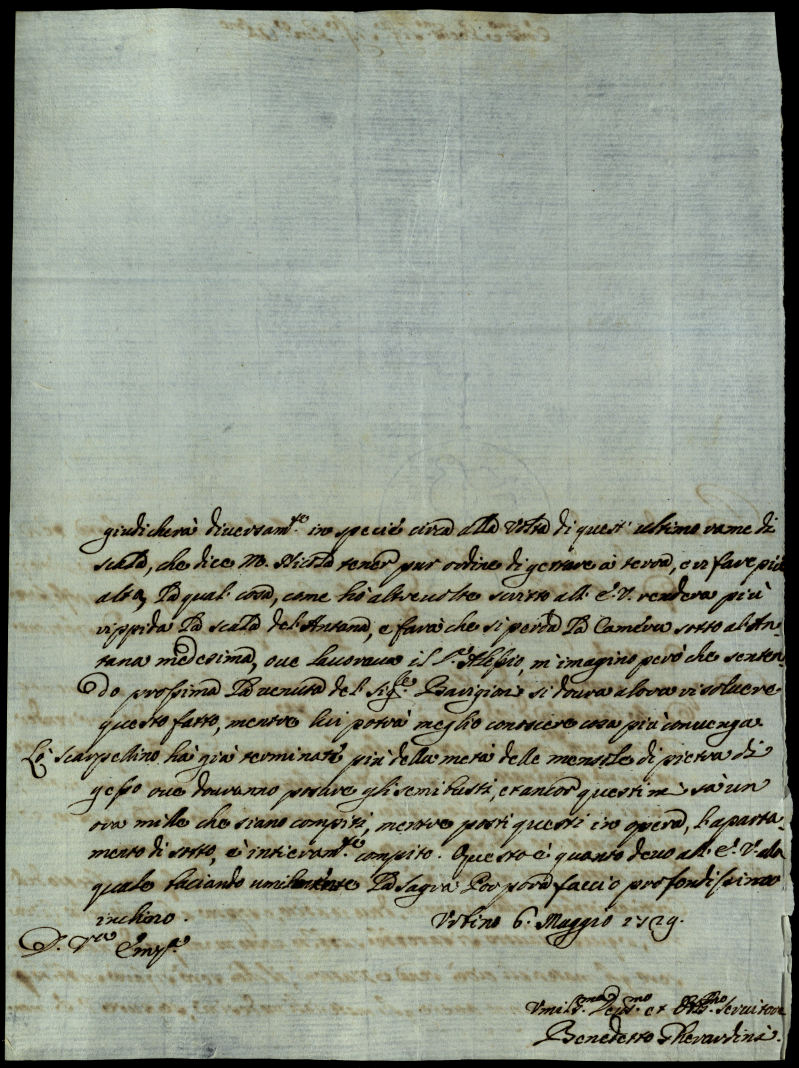 giudicherà diversam.te in specie circa alla volta di questi ultimo rame di
scala, che dice M. Nicola tener pur ordine di gettare à terra, e rifare più
alta, la qual cosa, come hò altre volte scritto all' E.V. renderà più
rippida la scala del Antana, e farà che si perda la Camera sotto al An=
tana medesima, ove lavorava il S.r Alessio, m'imagino però che senten=
do prossima la venuta del Sig.re Barigioni si dovrà alora risolvere
questo fatto, mentre lui potrà meglio conoscere cosa più convenga
Lo Scarpellino hà già terminate più della metà delle mensole di pietra di
gesso ove douranno posare gli semibusti, et ancor questi mi sà un
ora mille che siano compiti, mentre posti questi in opera, l'aparta=
mento di sotto, è intieram.te compito. Questo è quanto devo all' E.V. alla
quale baciando umilmente la Sagra Porpora faccio profondissimo
inchino. Urbino 6. Maggio 1729.
D. V.ra Em.za
Umil.ma Dev.mo et Obb.mo Servitore
Benedetto Gherardini.